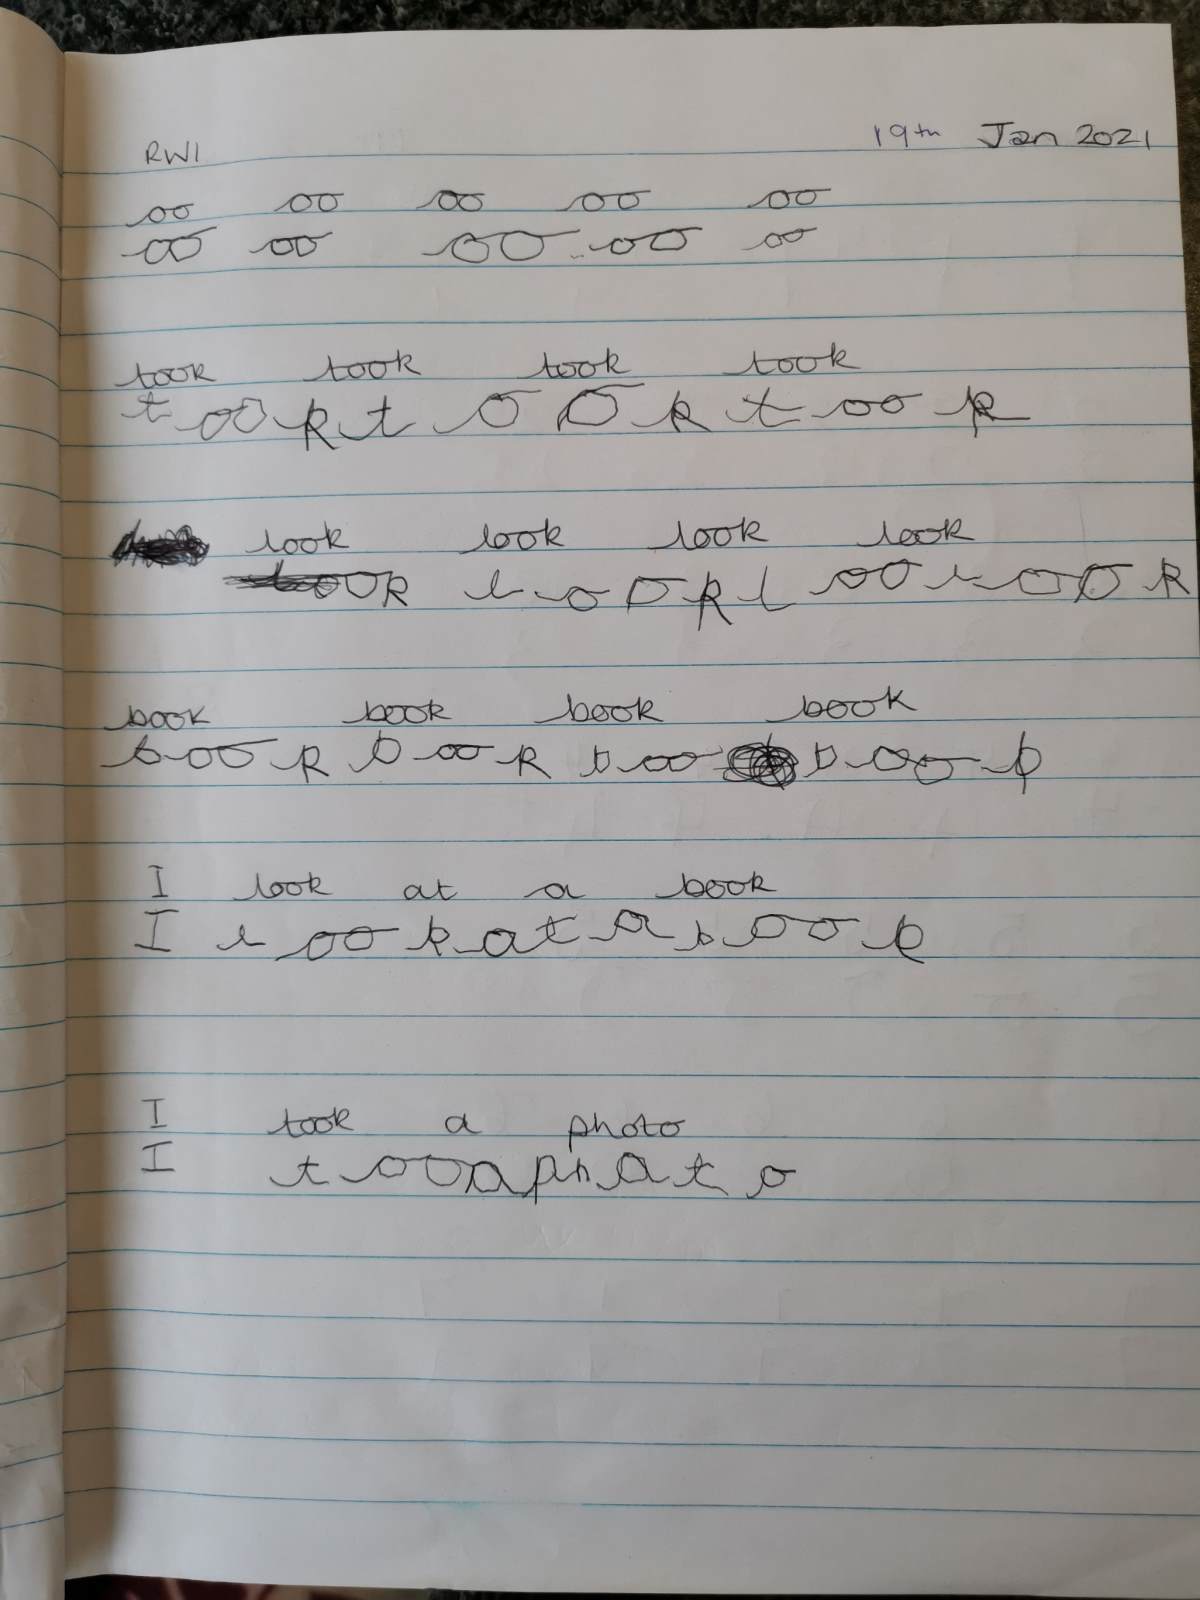 RWI 19th Jan 2021
oo oo oo oo oo
oo oo oo oo oo
took took took took
t oo k t o o k t oo k
look look look look
ook l o o k l oo l o o k
book book book book
b oo k b oo k b oo b o o k
I look at a book
I l oo k a t a b o o k
I took a photo
I t oo a p h a t o